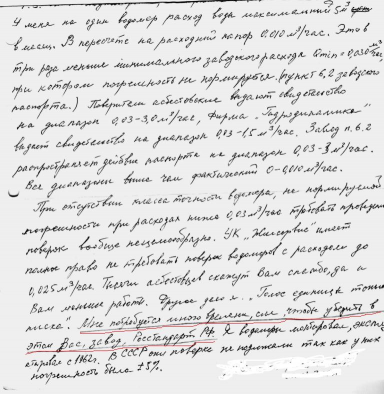 У меня на один водомер расход воды максимальный 5 м³
в месяц. В пересчете на расходный напор 0,010 м³/час. Это в
три раза меньше минимального заводского расхода Qmin = 0,030 м³/час
при котором погрешность не нормируется. (пункт 6.2 заводского
паспорта.) Поверители асбестовские выдают свидетельство
на диапазон 0,03-3,0 м³/час, фирма „Гидродинамика"
выдает свидетельство на диапазон 0,03-1,5 м³/час. Завод п. 6.2
распространяет действие паспорта на диапазон 0,03-3 м³/час.
Все диапазоны выше чем фактический 0-0,010 м³/час.
При отсутствии класса точности водомера, не нормируемой
погрешности при расходах ниже 0,03 м³/час требовать проведения
поверок вообще нецелесообразно. УК „Жилсервис" имеет
полное право не требовать поверок водомеров с расходом до
0,025 м³/час. Тысячи асбестовцев скажут Вам спасибо, да и
Вам меньше работы. Другое дело я... Голос единицы тоньше
писка. Мне потребуется много времени, сил чтобы убедить в
этом Вас, завод, Росстандарт РФ. Я водомеры монтировал,
с 1962г. В СССР они поверке не подлежали так как у них
погрешность была ±5%.